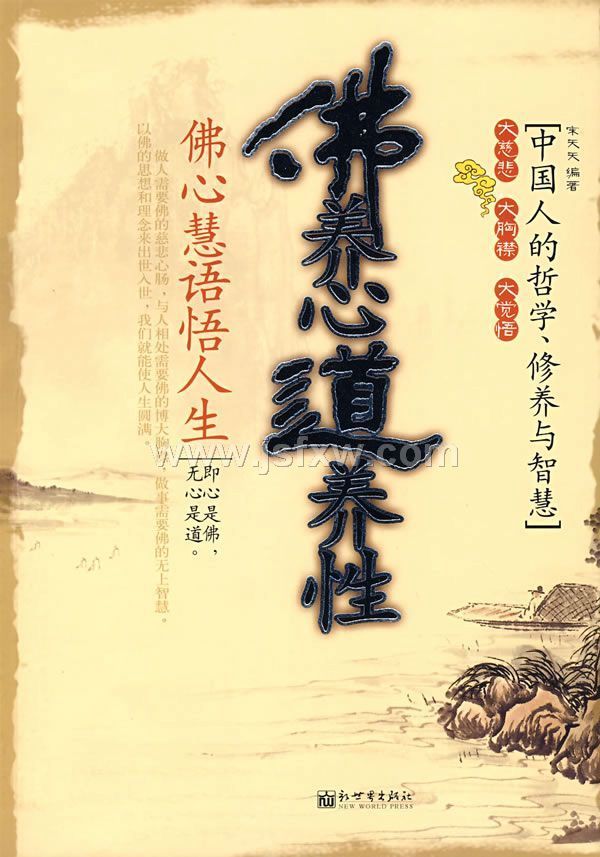 宋天天 编著
[中国人的哲学、修养与智慧]
大慈悲 大胸襟 大觉悟
佛养心道养性
佛心慧语悟人生
即心是佛，
无心是道。
做人需要佛的慈悲心肠，与人相处需要佛的博大胸 做事需要佛的无上智慧。
以佛的思想和理念来出世入世，我们就能使人生圆满。
www.jsfxw.com
新世界出版社
NEW WORLD PRESS